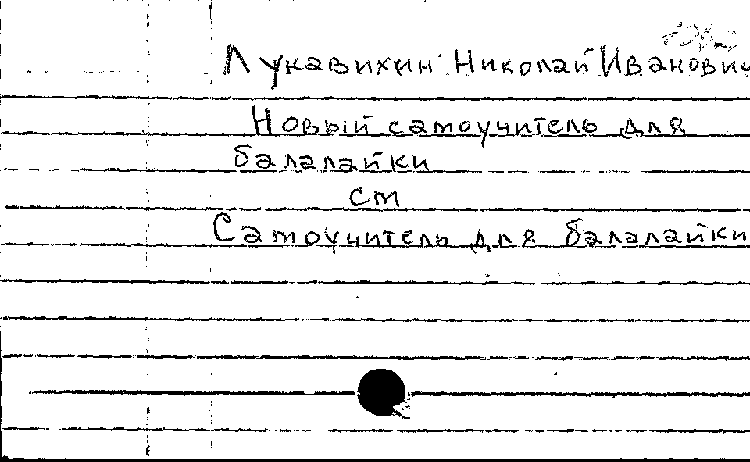 Лукавихин Николай Иванович
Новый самоучитель для
балалайки
см
Самоучитель для балалайки